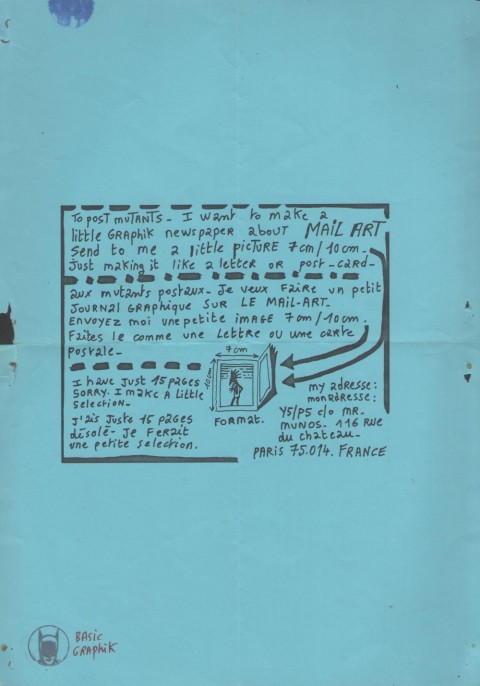 TO POST MUTANTS - I WANT TO MAKE A
LITTLE GRAPHIK NEWSPAPER ABOUT MAIL ART
SEND TO ME A LITTLE PICTURE 7 CM / 10 CM -
JUST MAKING IT LIKE A LETTER OR POST-CARD -
AUX MUTANTS POSTAUX - JE VEUX FAIRE UN PETIT
JOURNAL GRAPHIQUE SUR LE MAIL-ART.
ENVOYEZ MOI UNE PETITE IMAGE 7 CM / 10 CM.
FAITES LE COMME UNE LETTRE OU UNE CARTE
POSTALE -
7 CM
10 CM
FORMAT.
I HAVE JUST 15 PAGES
SORRY. I MAKE A LITTLE
SELECTION -
J'AIS JUSTE 15 PAGES
DÉSOLÉ - JE FERAIT
UNE PETITE SELECTION.
MY ADRESSE:
MON ADRESSE:
Y5/P5 C/O MR.
MUNOS. 116 RUE
DU CHATEAU -
PARIS 75.014. FRANCE
BASIC
GRAPHIK